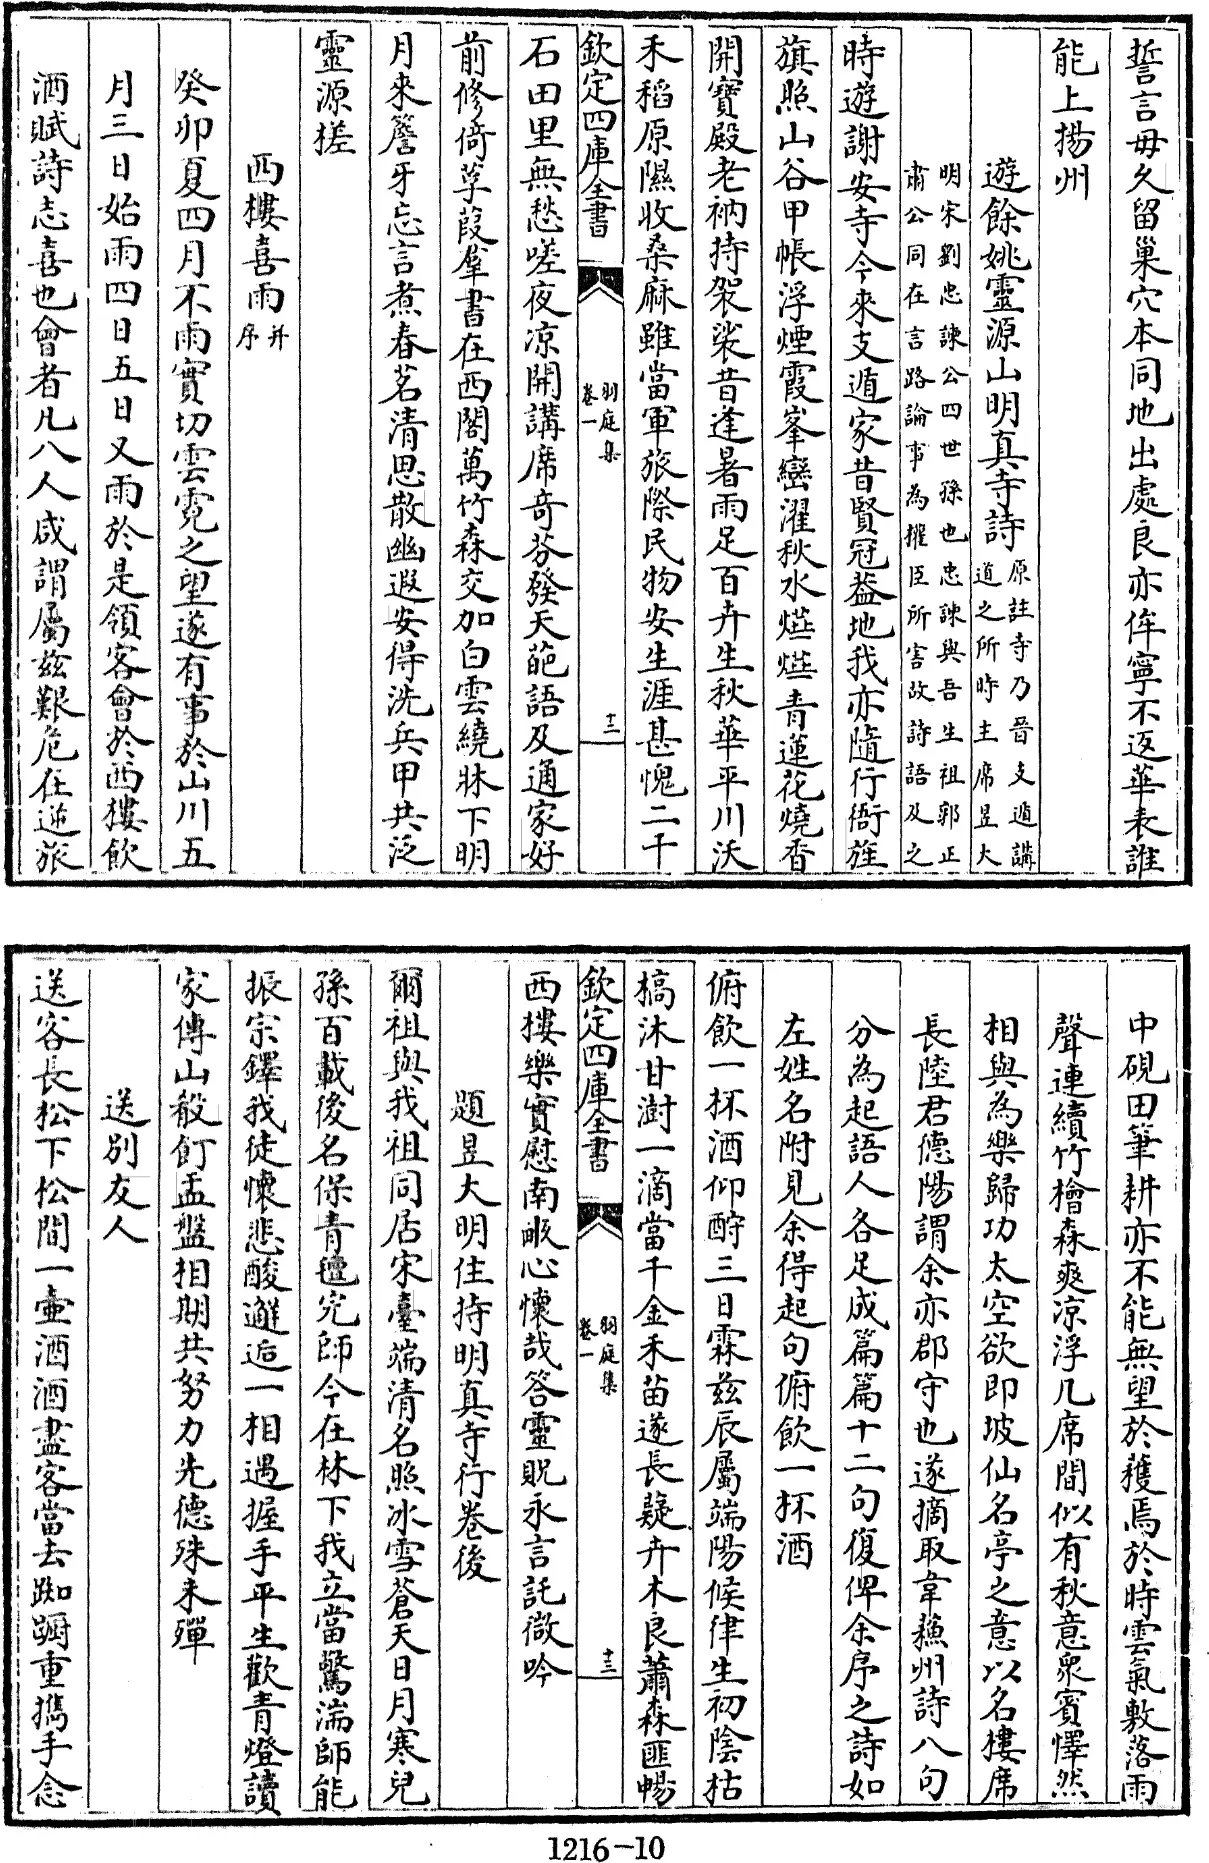 誓言毋久留巢穴本同地出處良亦侔寧不返華表誰
能上揚州
遊餘姚靈源山明真寺詩
原註寺乃晉支遁講
道之所時主席昱大
明宋劉忠諫公四世孫也忠諫與吾生祖郭正
肅公同在言路論事為權臣所害故詩語及之
時遊謝安寺今來支遁家昔賢冠蓋地我亦隨行衙旌
旗照山谷甲帳浮煙霞峯巒濯秋水爁爁青蓮花燒香
開寶殿老衲持袈裟昔逢暑雨足百卉生秋華平川沃
禾稻原隰收桑麻雖當軍旅際民物安生涯甚愧二千
欽定四庫全書
羽庭集
卷一
十二
石田里無愁嗟夜凉開講席奇芬發天葩語及通家好
前修倚莩葭羣書在西閣萬竹森交加白雲繞牀下明
月來簷牙忘言煮春茗清思散幽遐安得洗兵甲共泛
靈源槎
西樓喜雨
并
序
癸卯夏四月不雨實切雲霓之望遂有事於山川五
月三日始雨四日五日又雨於是領客會於西樓飲
酒賦詩志喜也會者凡八人咸謂屬兹艱危在逆旅
中硯田筆耕亦不能無望於穫焉於時雲氣敷落雨
聲連續竹檜森爽凉浮几席間似有秋意衆賓懌然
相與為樂歸功太空欲即坡仙名亭之意以名樓席
長陸君德陽謂余亦郡守也遂摘取韋蘇州詩八句
分為起語人各足成篇篇十二句復俾余序之詩如
左姓名附見余得起句俯飲一抔酒
俯飲一抔酒仰酹三日霖兹辰屬端陽候律生初陰枯
槁沐甘澍一滴當千金禾苗遂長疑卉木良蕭森匪暢
欽定四庫全書
羽庭集
卷一
十三
西樓樂實慰南畝心懷哉答靈貺永言託微吟
題昱大明住持明真寺行卷後
爾祖與我祖同居宋臺端清名照冰雪蒼天日月寒兒
孫百載後名保青氊完師今在林下我立當驚湍師能
振宗鐸我徒懷悲酸邂逅一相遇握手平生歡青燈讀
家傳山殽飣盂盤相期共努力先德殊未殫
送別友人
送客長松下松間一壷酒酒盡客當去踟躕重擕手念
1216-10